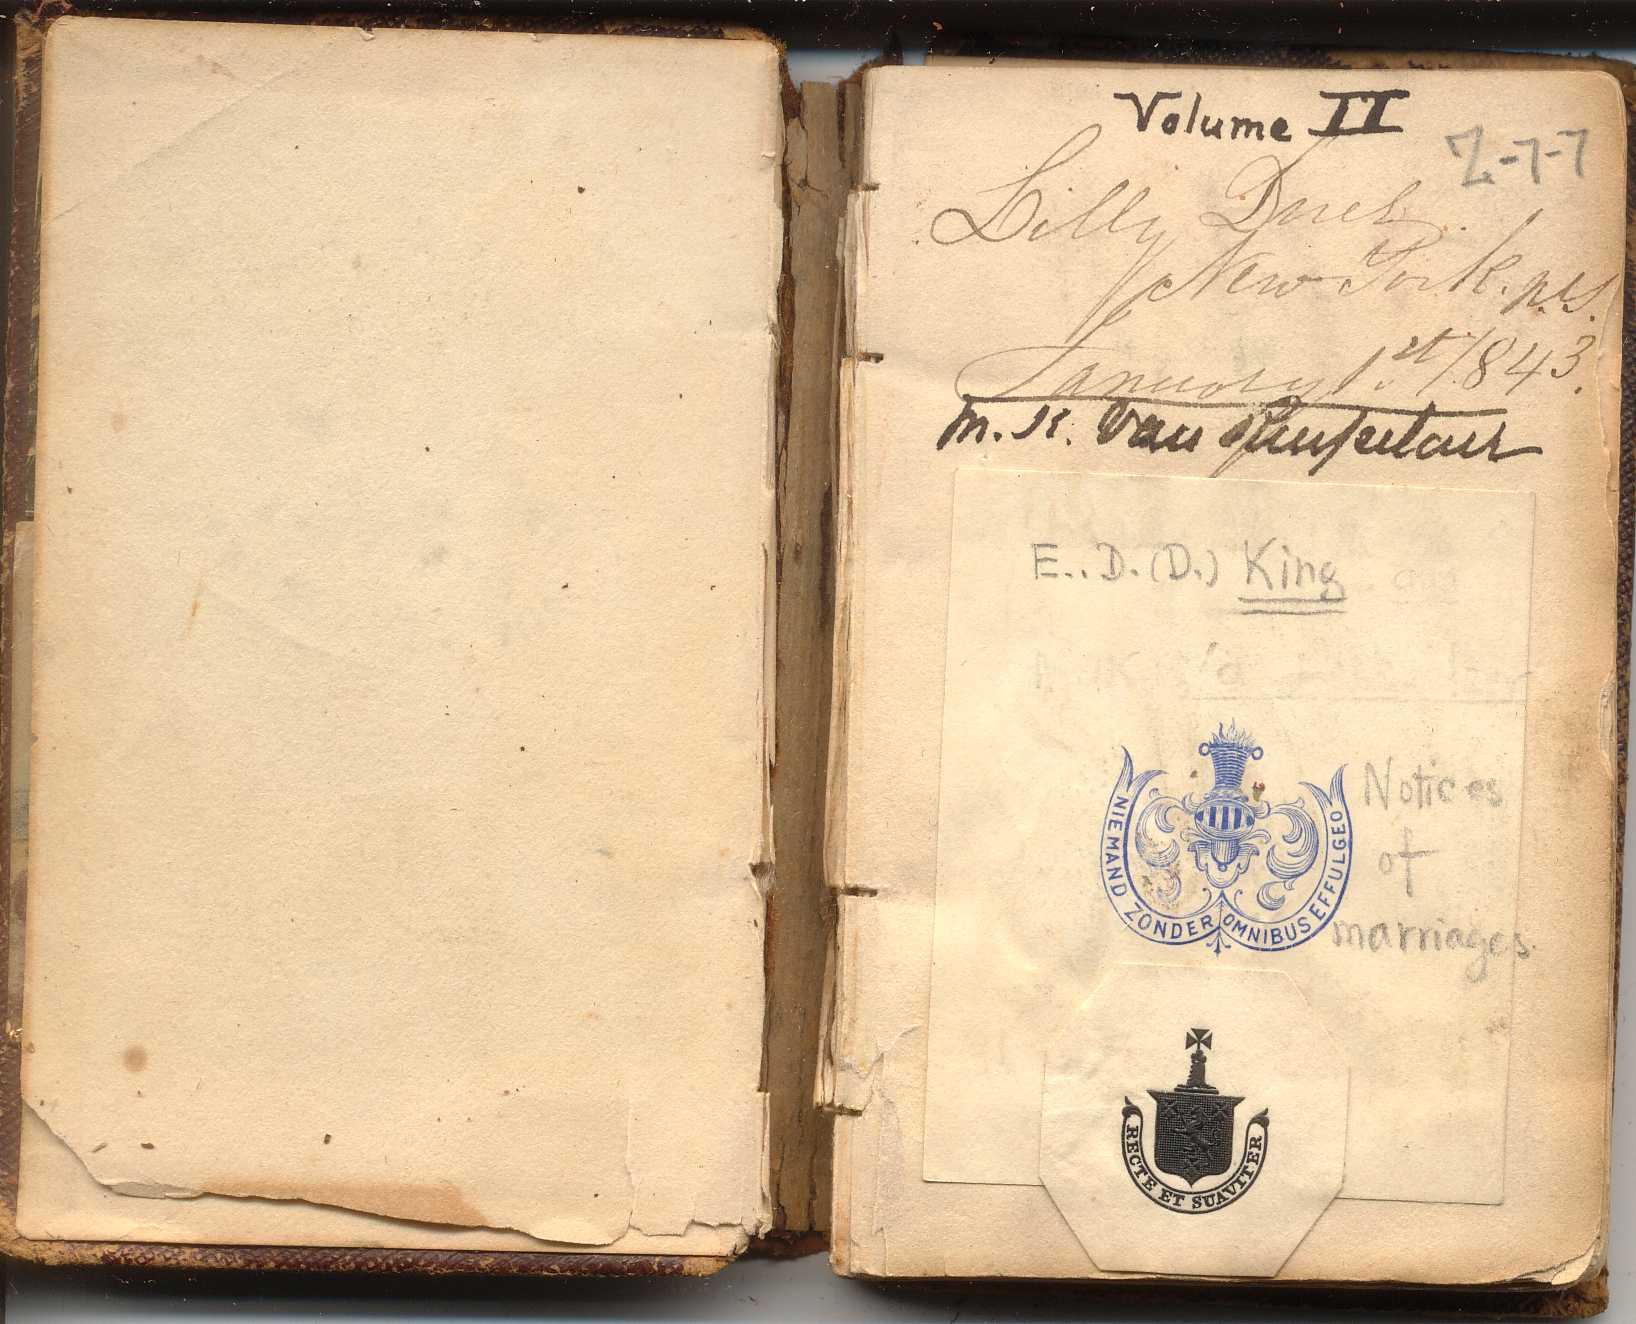 Volume II
Z-7-7
Lilly
New York.
January 1.st 1843.
M. K. Van Rensselaer
E.. D. (D.) King
Notices
of
marriages.
NIEMAND ZONDER OMNIBUS EFFULGEO
RECTE ET SUAVITER